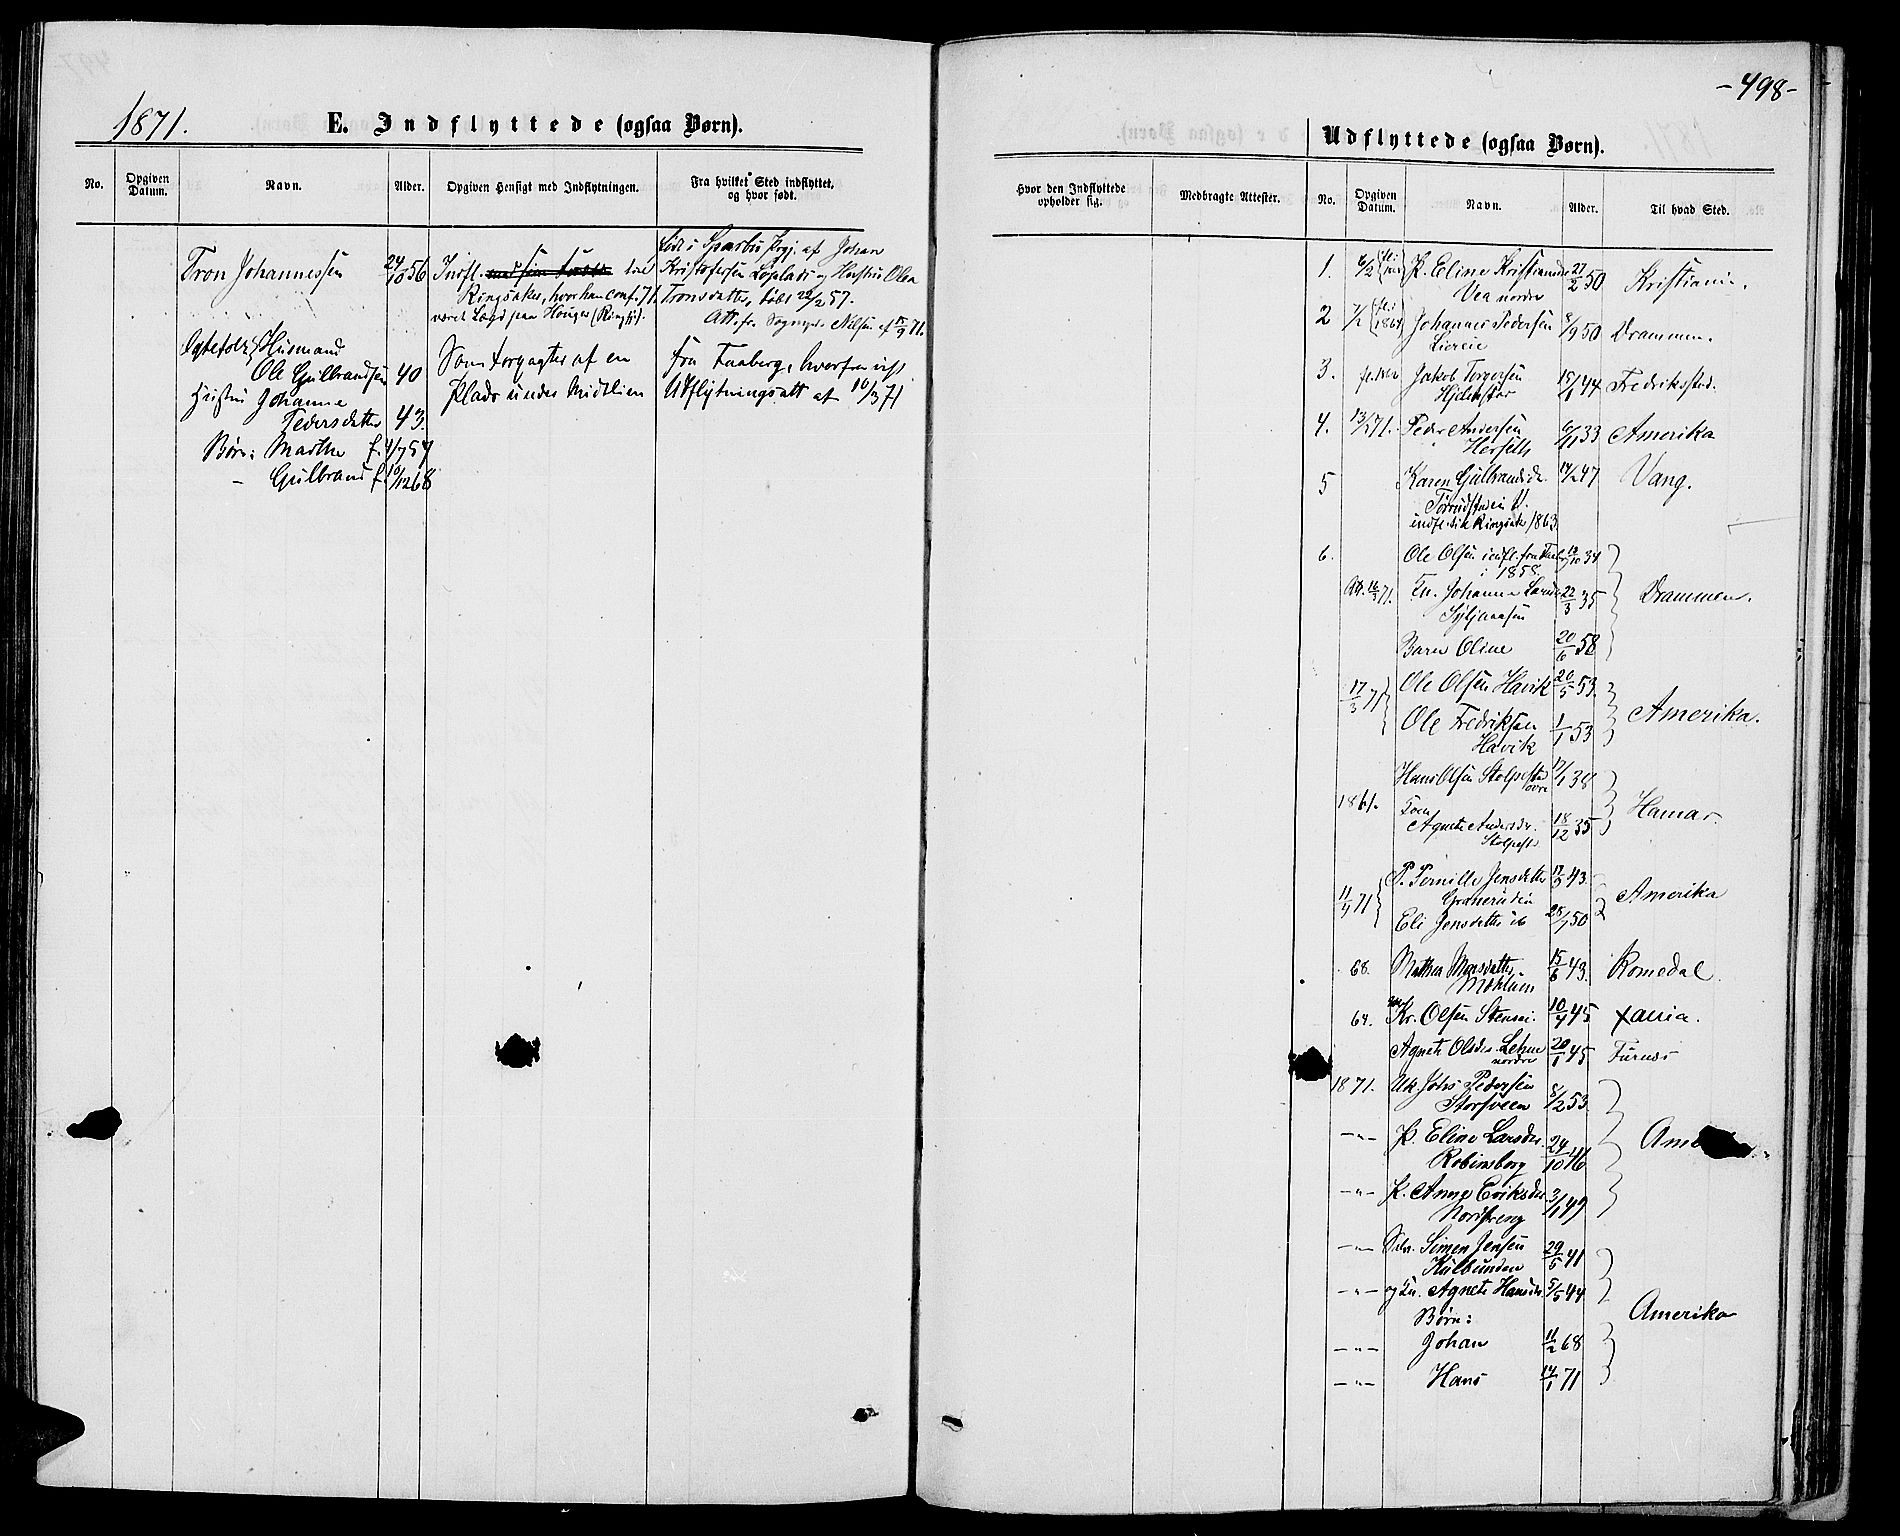 1871.
E. Indflyttede (ogsaa Børn).
No.
Opgiven Datum.
Navn.
Alder.
Opgiven Hensigt med Indflytningen.
Fra hvilket Sted indflyttet, og hvor født.
Tron Johannessen 24/10 56
Indfl. med sine til
Ringsaker, hvor han conf. 71.
født i Prgj. af Johan
Kristofersen og Hustru Olea
Tronsdatter, født 22/2 57.
Att. fra Sognepr. Nilsen af 71.
Husmand
Ole Gulbrandsen 40
Hustru Johanne
Pedersdatter 43.
Børn: Marthe f. 4/7 57
- Gulbrand f. 10/12 68
Som Forpagter af en
Plads under Midtlien
fra Faaberg, hvorfra
Udflytningsatt af 10/3 71
-498-
Udflyttede (ogsaa Børn).
Hvor den Indflyttede opholder sig.
Medbragte Attester.
No.
Opgiven Datum.
Navn.
Alder.
Til hvad Sted.
1. 6/2 P. Eline Kristiansdr 27/2 50 Kristiania.
Vea nordre
2 7/2 Johannes Pedersen 8/9 50 Drammen.
Liereie
3. Jakob Torgersen 44 Fredriksstad.
Hjelmstad
4. 13/2 71. Peder Andersen 6/11 33 Amerika
5 Karen Gulbrandsdr. 14/2 47 Vang.
indfl. til Ringsak. 1863.
6. Ole Olsen indfl. fra Faaberg 34
i 1858.
Att. 16/3 71. Kn. Johanne Larsdr 22/3 35 Drammen.
Barn Oline 20/6 58
17/3 71 Ole Olsen Havik 20/5 53.
Ole Fredriksen 1/1 53 Amerika.
Havik
Hans Olsen Stolpestad 17/1 38
øvre
1861. Hamar.
Agnete Andersdr. 18/12 35
Stolpest.
11/4 71 P. Pernille Jensdatter 17/9 43. Amerika
Graneruden
Eli Jensdatter ib 28/7 50
68. Mathea Larsdatter 15/6 43. Romedal.
64. Kr. Olsen Stensei. 10/4 45 Xania.
Agnete Olsdr. Lehne 20/1 45 Furnæs
nordre
1871. Ung. Johs Pedersen 8/2 53.
Storsveen
-"- P. Eline Larsdr. 24/10 46 Ame
Robinsborg
-"- P. Anne Eriksdr. 3/1 49
Nordseng
-"- Selv. Simen Jensen 29/5 41
Kulbunden
-"- og Kn. Agnete Hansdr. 5/5 44
Amerika
Børn:
-"- Johan 11/2 68
-"- Hans 14/1 71